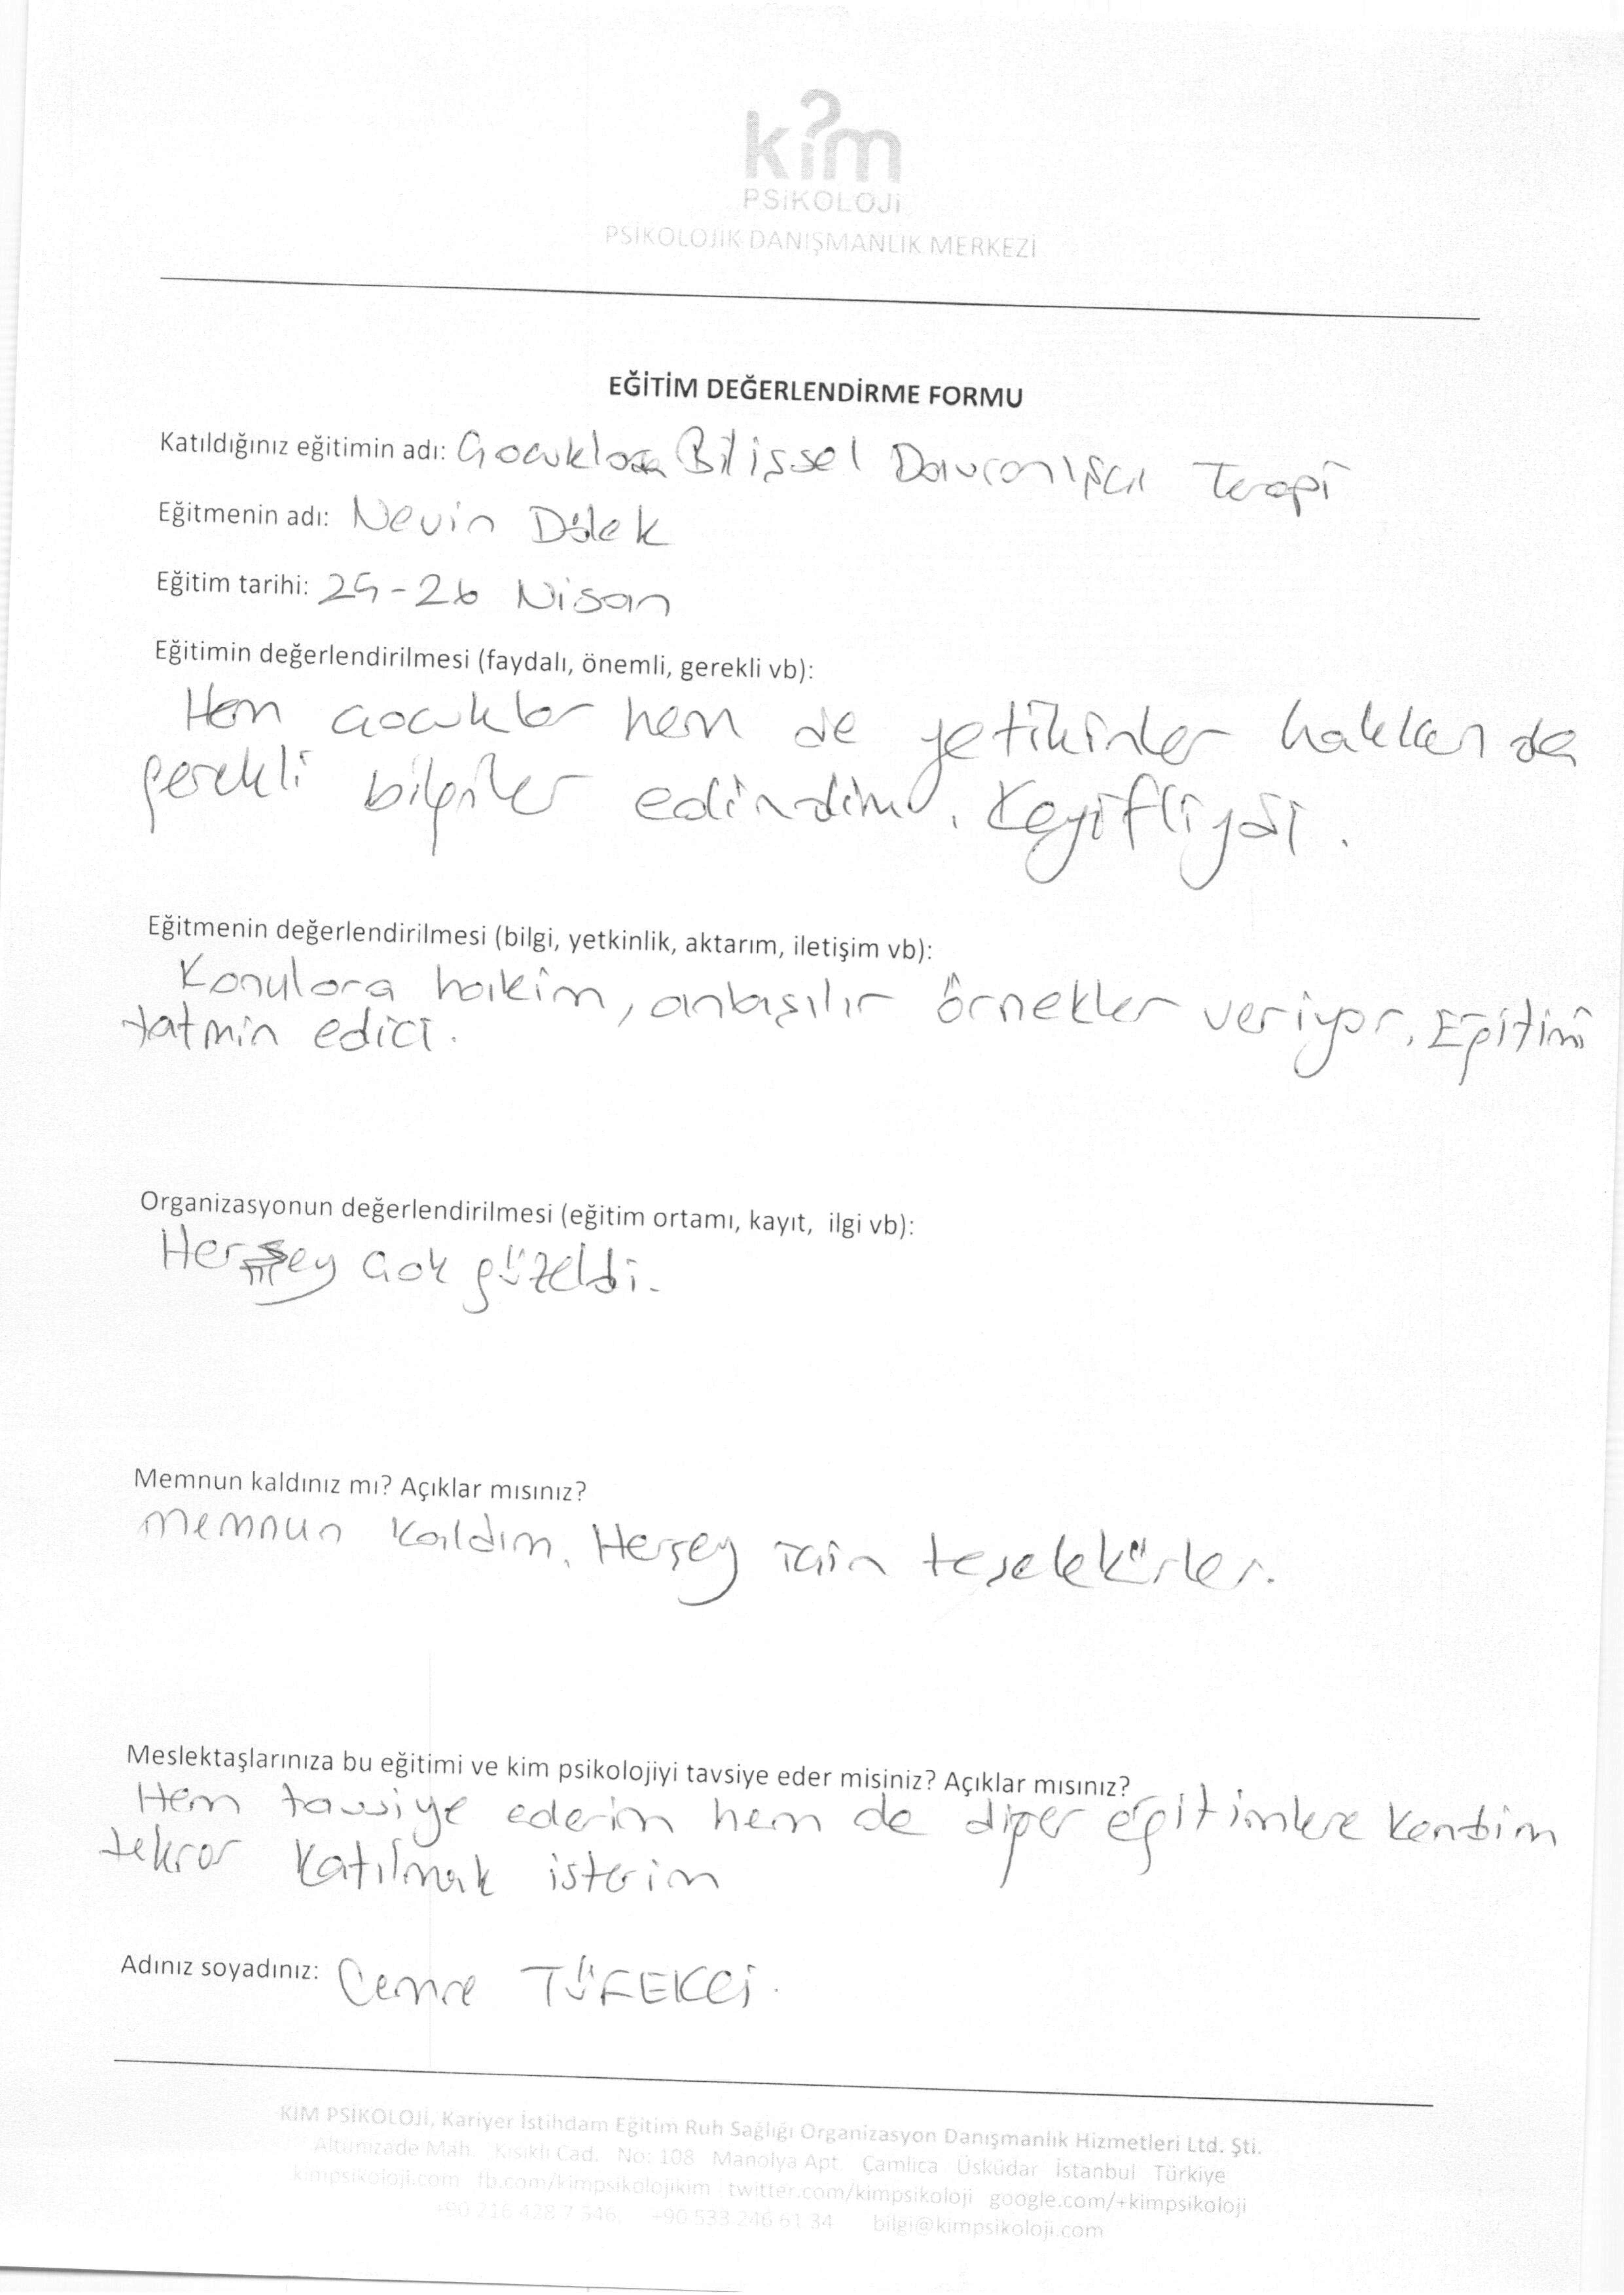 kim
PSiKOLOJi
PSİKOLOJİK DANIŞMANLIK MERKEZİ
EĞİTİM DEĞERLENDİRME FORMU
Katıldığınız eğitimin adı: Çocuklarda Bilişsel Davranışçı Terapi
Eğitmenin adı: Nevin Dölek
Eğitim tarihi: 25-26 Nisan
Eğitimin değerlendirilmesi (faydalı, önemli, gerekli vb):
Hem çocuklar hem de yetikinler hakkında
gerekli bilgiler edindim. Keyifliydi.
Eğitmenin değerlendirilmesi (bilgi, yetkinlik, aktarım, iletişim vb):
Konulara hakim, anlaşılır örnekler veriyor. Eğitimi
tatmin edici.
Organizasyonun değerlendirilmesi (eğitim ortamı, kayıt, ilgi vb):
Herşey çok güzeldi.
Memnun kaldınız mı? Açıklar mısınız?
Memnun kaldım. Herşey için teşekkürler.
Meslektaşlarınıza bu eğitimi ve kim psikolojiyi tavsiye eder misiniz? Açıklar mısınız?
Hem tavsiye ederim hem de diğer eğitimlere kendim
tekrar katılmak isterim
Adınız soyadınız: Cemre TÜFEKCİ.
KİM PSIKOLOJİ, Kariyer İstihdam Eğitim Ruh Sağlığı Organizasyon Danışmanlık Hizmetleri Ltd. Şti.
Altunizade Mah. Kısıklı Cad. No: 108 Manolya Apt Çamlıca Üsküdar İstanbul Türkiye
kimpsikoloji.com fb.com/kimpsikolojikim twitter.com/kimpsikoloji google.com/+kimpsikoloji
+90 216 428 7 546 +90 533 246 61 34 bilgi@kimpsikoloji.com